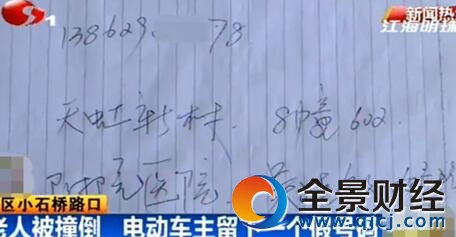 新闻热
江海明珠
138629 78
天虹新村 8幢602
医院
区小石桥路口
老人被撞倒 电动车主留下一个假号码
全景财经
www.qjcj.com